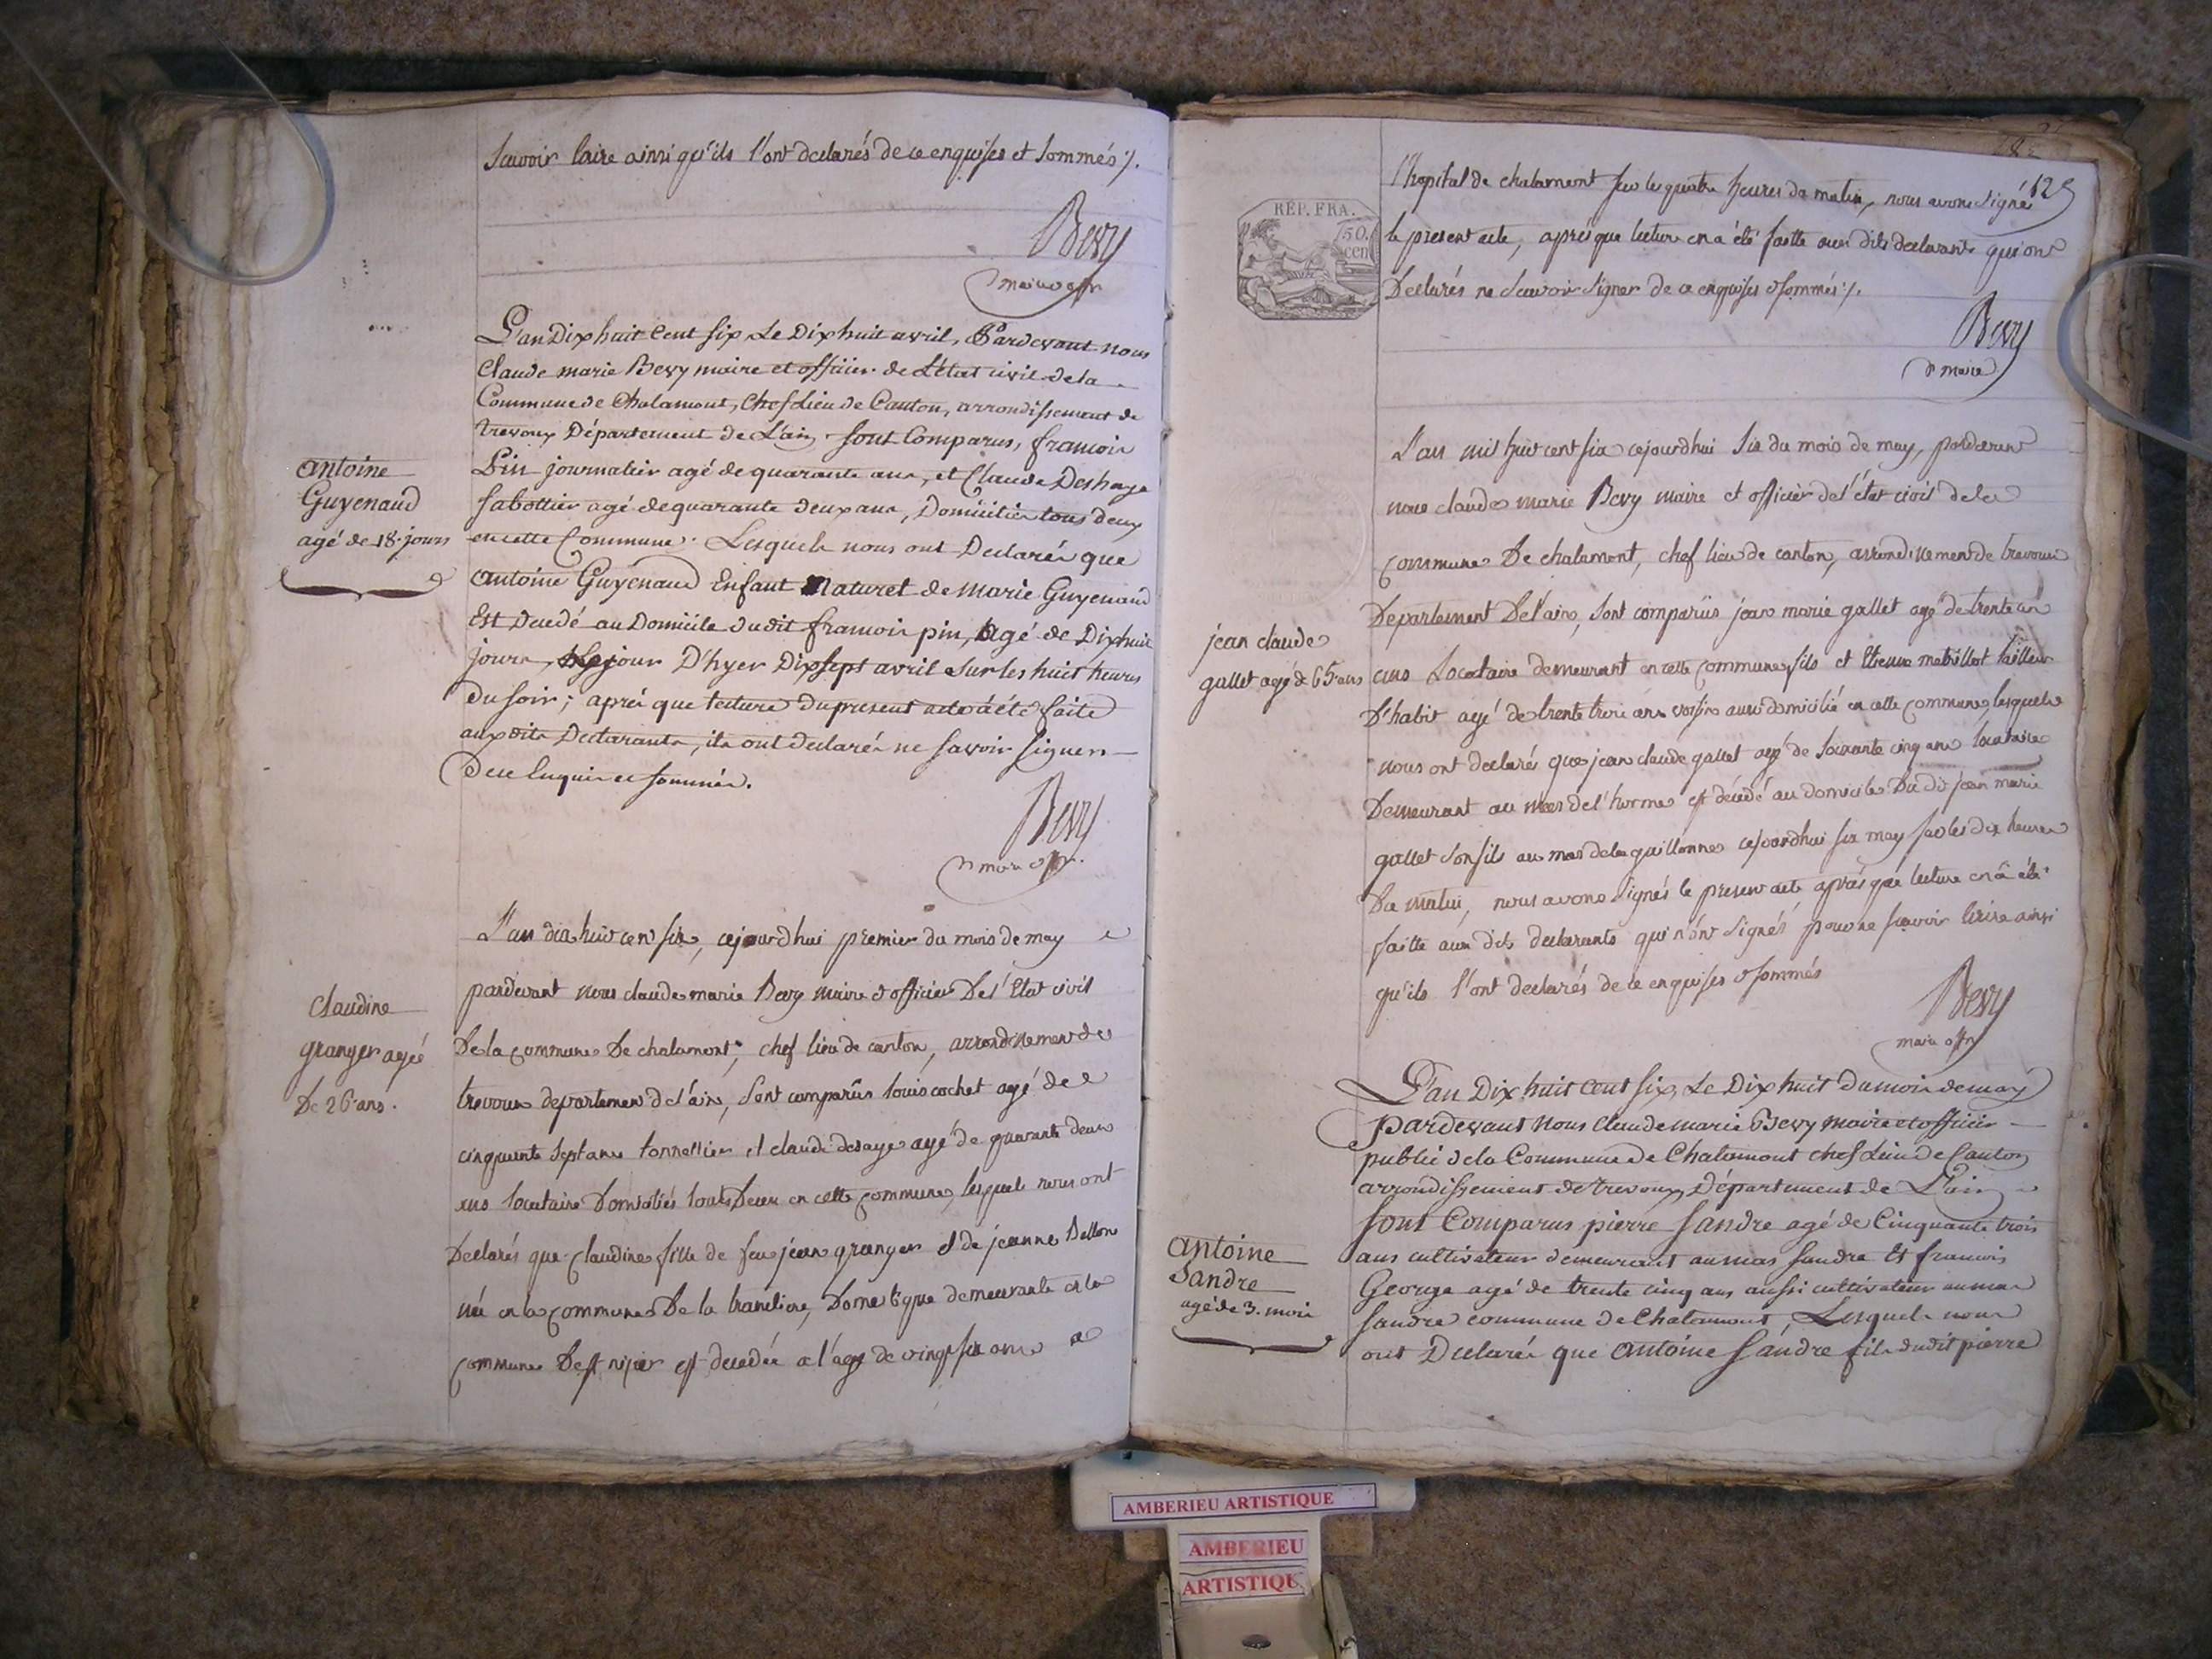 Scavoir lire ainsi qu'ils l'ont declarés de ce enquises et sommés ./.
Bevy
maire offr
L'an Dix huit Cent six, Le Dix huit avril, Pardevant nous
Claude marie Bevy maire et officier de L'état civil de la
Commune de Chalamont, Chef Lieu de Canton, arrondissement de
trevoux Département de L'ain, sont Comparus, francois
Pin journalier agé de quarante ans, et Claude Deshaye
sabottier agé de quarante deux ans, Domicilies tous deux
en cette Commune. Lesquels nous ont Declarés que
antoine Guyenaud Enfant Naturel de Marie Guyenaud
Est Decedé au Domicile dudit francois pin, agé de Dix huit
jours, jour D'hyer Dix sept avril sur les huit heures
du soir ; aprés que lecture du present acte a été faite
aux dits Declarants, ils ont declarés ne savoir signer
de ce Enquis et sommés.
Bevy
maire offr.
antoine
Guyenaud
agé de 18. jours
L'an dix huit cent six, cejourdhui premier du mois de may
pardevant nous claude marie Bevy maire et officier De l'Etat civil
De la commune De chalamont, chef lieu de canton, arrondissement de
trevoux departement de l'ain, sont comparûs louis cochet agé de
cinquante sept ans tonnellier et claude desaye agé de quarante deux
ans locataire Domiciliés touts Deux en cette commune, lesquels nous ont
Declarés que claudine fille de feu jean granger et de jeanne Bellon
née en la commune De la trancliere, Domestique demeurante en la
commune De st nizier est decedée a l'age de vingt six ans a
claudine
granger agée
De 26 ans.
125
REP. FRA.
50.
cen
l'hopital de chalamont sur les quatre heures du matin, nous avons signé
le present acte, aprés que lecture en a été faitte aux dits declarants qui ont
Declarés ne scavoir signer de ce enquises et sommés ./.
Bevy
maire
L'an mil huit cent six cejourdhui six du mois de may, pardevant
nous claude marie Bevy maire et officièr de l'état civil de la
commune De chalamont, chef lieu de canton, arrondissement de trevoux
Departement De l'ain, sont comparûs jean marie gallet agé de trente un
ans Locataire demeurant en cette commune fils et Etienne metrillot tailleur
D'habit agé de trente trois ans voisin aussi domicilié en cette commune, lesquels
nous ont declarés que jean claude gallet agé de soixante cinq ans locataire
Demeurant au mas de l'horme est décedé au domicile Du dit jean marie
gallet son fils au mas de la guillonne cejourdhui six may sur les dix heures
Du matin, nous avons signés le present acte aprés que lecture en â été
faitte aux dits declarants qui n'ont signés pour ne scavoir lirire ainsi
qu'ils l'ont declarés de ce enquises et sommés
Bevy
maire offr
jean claude
gallet agé de 65 ans
L'an Dix huit Cent six, Le Dix huit du mois de may
pardevant Nous Claude marie Bevy maire et officier
public de la Commune de Chalamont chef Lieu de Canton
arrondissement de trevoux, Département de L'ain
sont Comparus pierre sandre agé de Cinquante trois
ans cultivateur demeurant au mas sandre Et francois
George agé de trente cinq ans aussi cultivateur au mas
sandre commune de Chalamont, Lesquels nous
ont Declarés que antoine sandre fils dudit pierre
antoine
Sandre
agé de 3. mois
AMBERIEU ARTISTIQUE
AMBERIEU
ARTISTIQUE